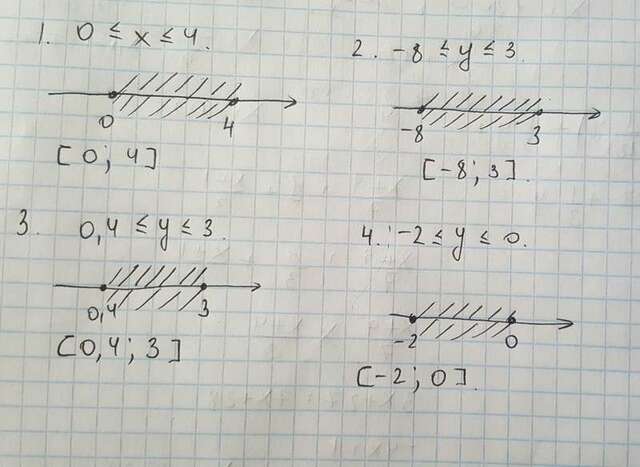 1. 0 ≤ x ≤ 4.
0 4
[0; 4]
2. -8 ≤ y ≤ 3.
-8 3
[-8; 3].
3. 0,4 ≤ y ≤ 3.
0,4 3
[0,4; 3]
4. -2 ≤ y ≤ 0.
-2 0
[-2; 0].